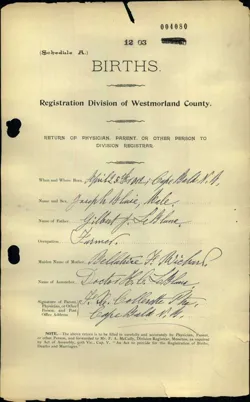 004080
12 03
(Schedule A.)
BIRTHS.
Registration Division of Westmorland County.
RETURN OF PHYSICIAN, PARENT, OR OTHER PERSON TO
DIVISION REGISTRAR.
When and Where Born, April Cape Bald N.B.
Name and Sex, Joseph Male.
Name of Father, Gilbert J. LeBlanc
Occupation, Farmer.
Maiden Name of Mother,
Name of Accoucheur, Doctor LeBlanc
Signature of Parent,
Physician, or Other
Person, and Post
Office Address.
Cape Bald N.B.
NOTE.—The above return is to be filled in carefully and accurately by Physician, Parent,
or other Person, and forwarded to Mr. F. A. McCully, Division Registrar, Moncton, as required
by Act of Assembly, 50th Vic., Cap. V. "An Act to provide for the Registration of Births,
Deaths and Marriages."